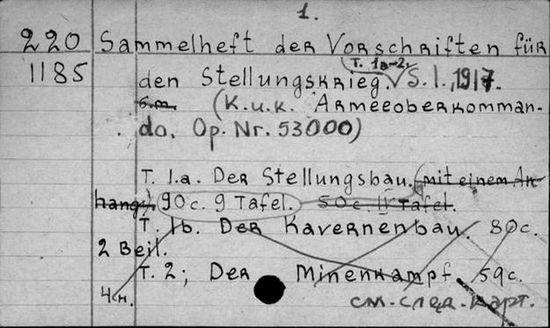 1.
220 Sammelheft der Vorschriften für
1185 den Stellungskrieg. T. 1a-2. S. l., 1917.
(K.u.k. Armeeoberkomman-
do. Op. Nr. 53000)
T. 1.a. Der Stellungsbau. (mit einem An-
hang). 90 c. 9 Tafel. 50 c. II Tafel.
T. 1b. Der Kavernenbau. 80c.
2 Beil.
T. 2; Der Minenkampf 59c.
4н. см. след. карт.